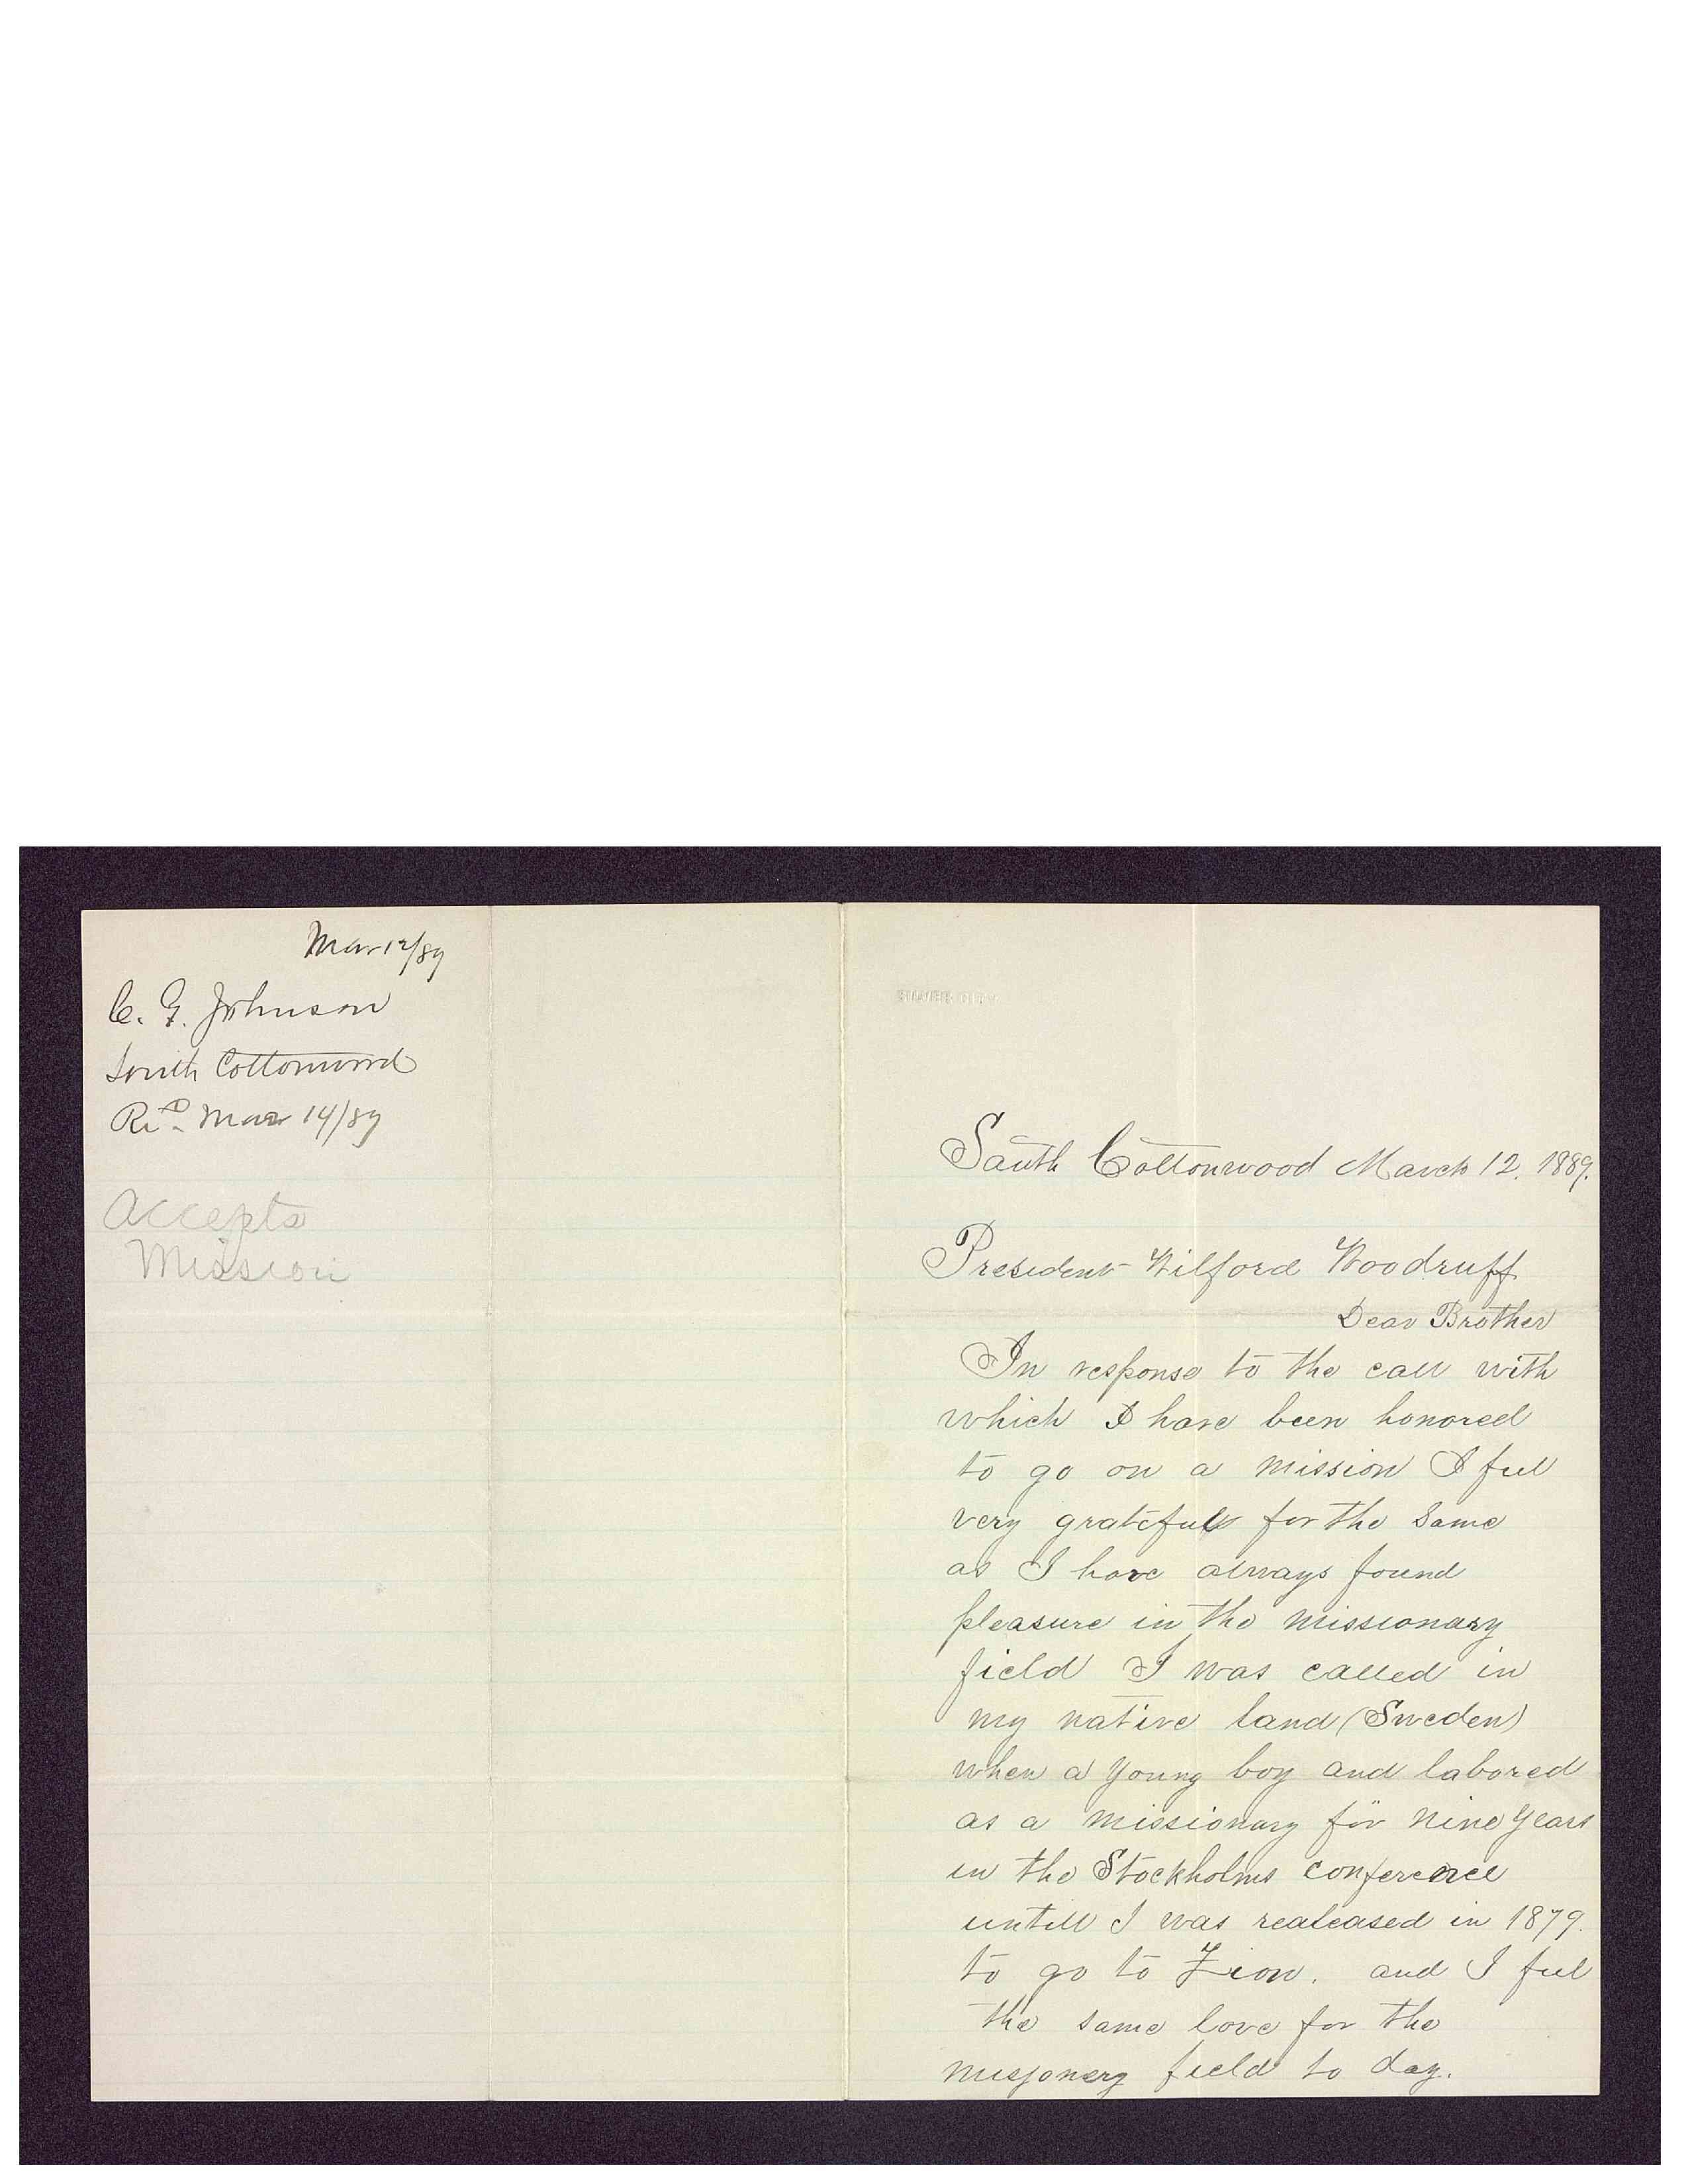 Mar 12/89
C. F. Johnson
South Cottonwood
Rec.d Mar 14/89
Accepts
Mission
South Cottonwood March 12, 1889.
President Wilford Woodruff
Dear Brother
In response to the call with
which I have been honored
to go on a mission I feel
very grateful for the same
as I have always found
pleasure in the missionary
field I was called in
my native land (Sweden)
when a young boy and labored
as a missionary för nine years
in the Stockholms conference
untill I was realeased in 1879.
to go to Zion. and I feel
the same love for the
missjonery field to day.